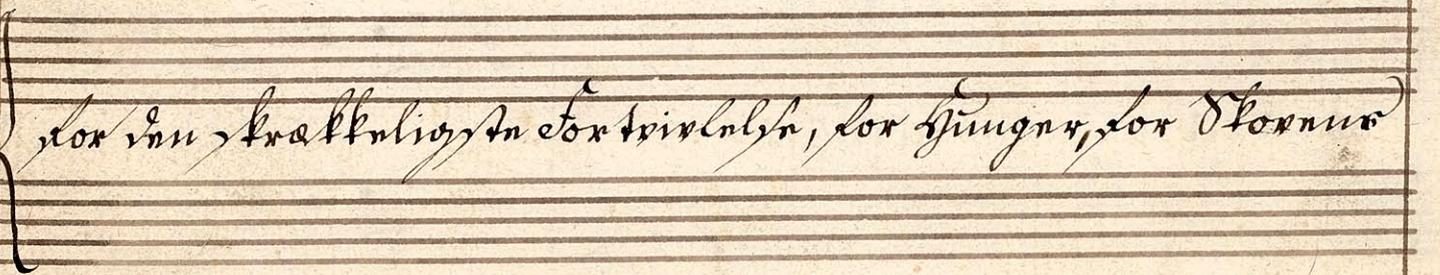 for den skrækkeligste Fortvivlelse, for Hunger, for Skovens